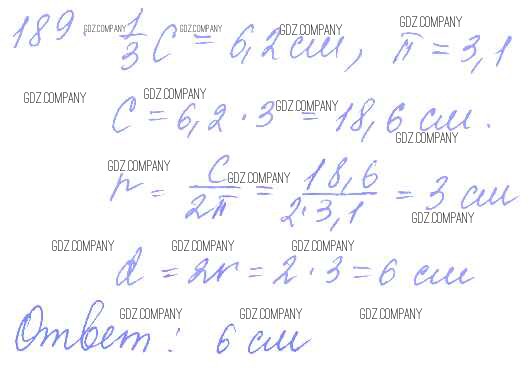 189 GDZ.COMPANY 1/3 C GDZ.COMPANY = 6,2 см, GDZ.COMPANY π = 3,1 GDZ.COMPANY
GDZ.COMPANY GDZ.COMPANY GDZ.COMPANY
C = 6,2 · 3 = 18,6 см.
GDZ.COMPANY
GDZ.COMPANY GDZ.COMPANY
r = C/2π = 18,6/2·3,1 = 3 см
GDZ.COMPANY
GDZ.COMPANY GDZ.COMPANY GDZ.COMPANY
d = 2r = 2 · 3 = 6 см
GDZ.COMPANY GDZ.COMPANY GDZ.COMPANY
Ответ: 6 см